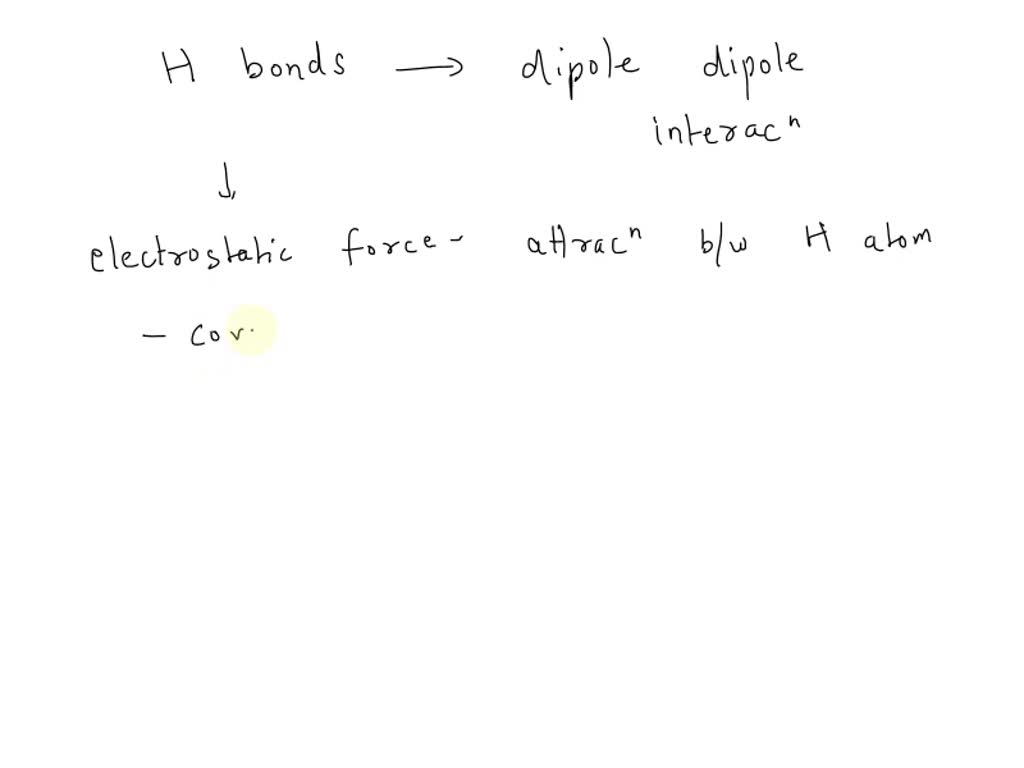 H bonds → dipole dipole
interacⁿ
↓
electrostatic force - attracⁿ b/w H atom
- cov.